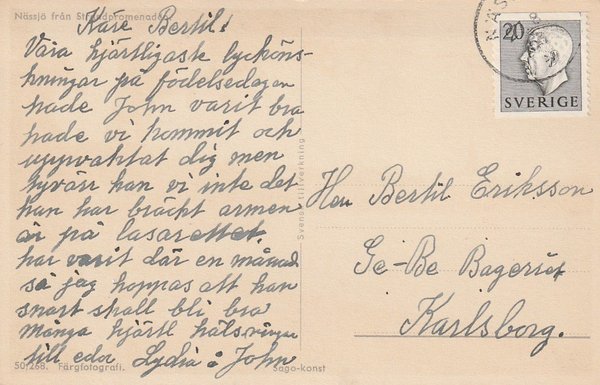 Nässjö från Strandpromenaden
Käre Bertil!
Våra hjärtligaste lycköns-
kningar på födelsedagen
hade John varit bra
hade vi kommit och
uppvaktat dig men
tyvärr kan vi inte det
han har bräckt armen
är på lasarettet.
har varit där en månad
så jag hoppas att han
snart skall bli bra
många hjärtl hälsningar
till eder Lydia o John
50/268. Färgfotografi.
Saga-konst
Svensk tillverkning
20
SVERIGE
Herr Bertil Eriksson
Ge-Be Bageriet
Karlsborg.